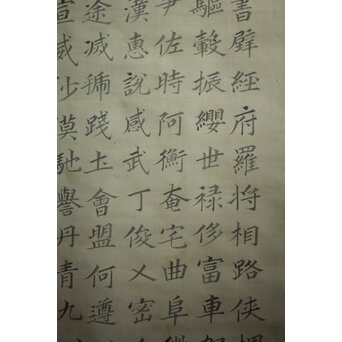 書壁經府羅將相路俠槐
驅轂振纓世禄侈富車駕
尹佐時阿衡奄宅曲阜微
漢惠說感武丁俊乂密勿
途滅虢踐土會盟何遵
宣威沙漠馳譽丹青九